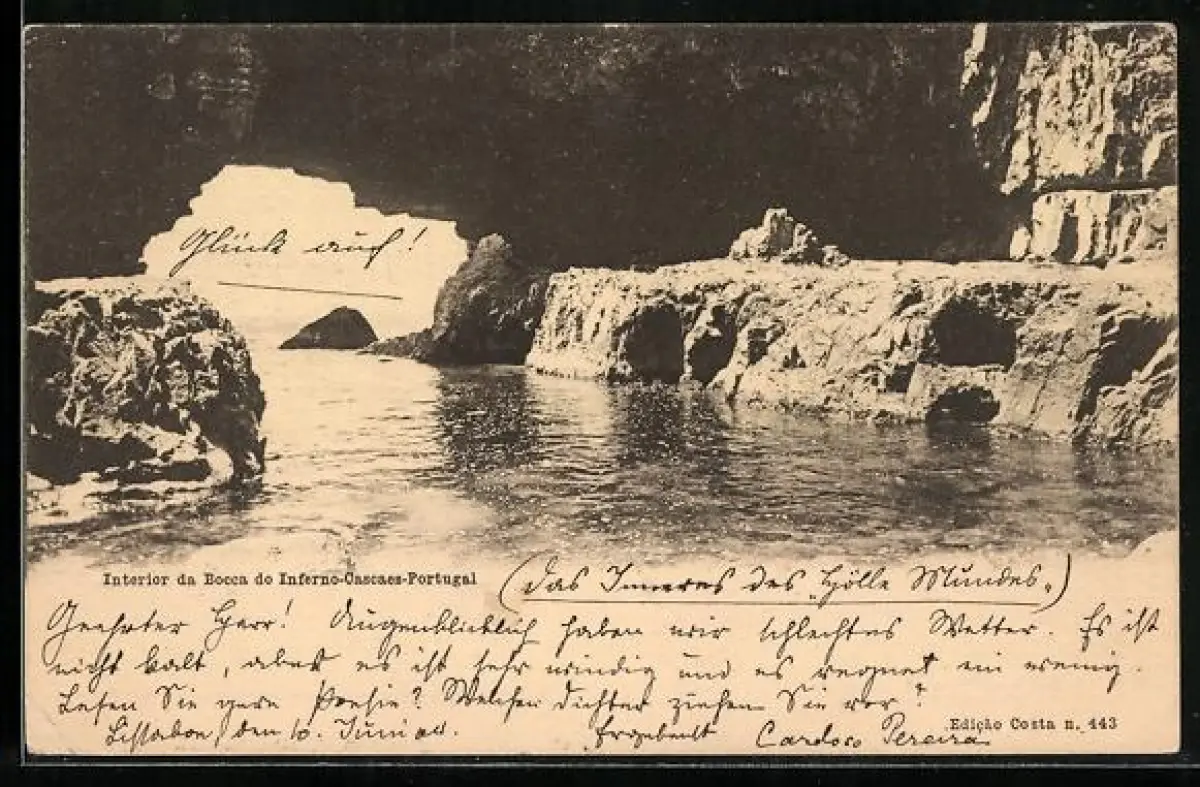 Glück auf!
Interior da Bocca do Inferno-Cascaes-Portugal
(Das Inneres des „Hölle Mundes“)
Geehrter Herr! Augenblicklich haben wir schlechtes Wetter. Es ist
nicht kalt, aber es ist sehr windig und es regnet ein wenig.
Lesen Sie gern Poesie? Welchen Dichter ziehen Sie vor?
Lissabon, den 10. Juni
Ergebenst Cardoso Pereira
Edição Costa n. 443